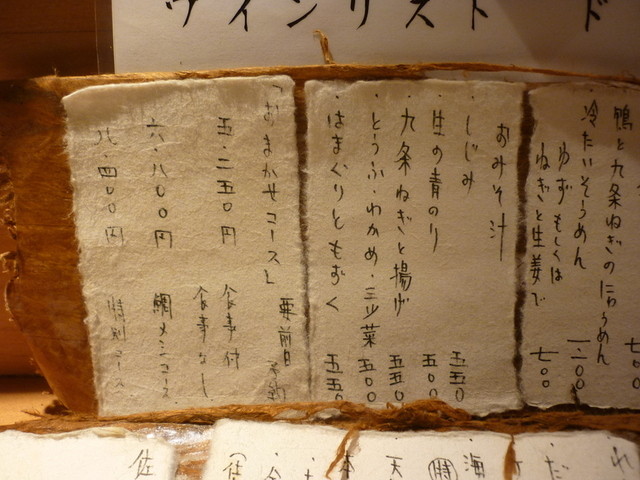 ワインリスト
ド
鴨と九条ねぎのにゅうめん
七〇〇
冷たいそうめん
一、二〇〇
ゆずもしくは
ねぎと生姜で
七〇〇
おみそ汁
・しじみ
五五〇
・生の青のり
五〇〇
・九条ねぎと揚げ
五五〇
・とうふ・わかめ・三ツ葉
五〇〇
・はまぐりともずく
五五〇
「おまかせコース」
要前日予約
五・二五〇円
食事付
食事なし
六・八〇〇円
鯛メシコース
八・四〇〇円
特別コース
れ
だ
海
時
天
本
佐